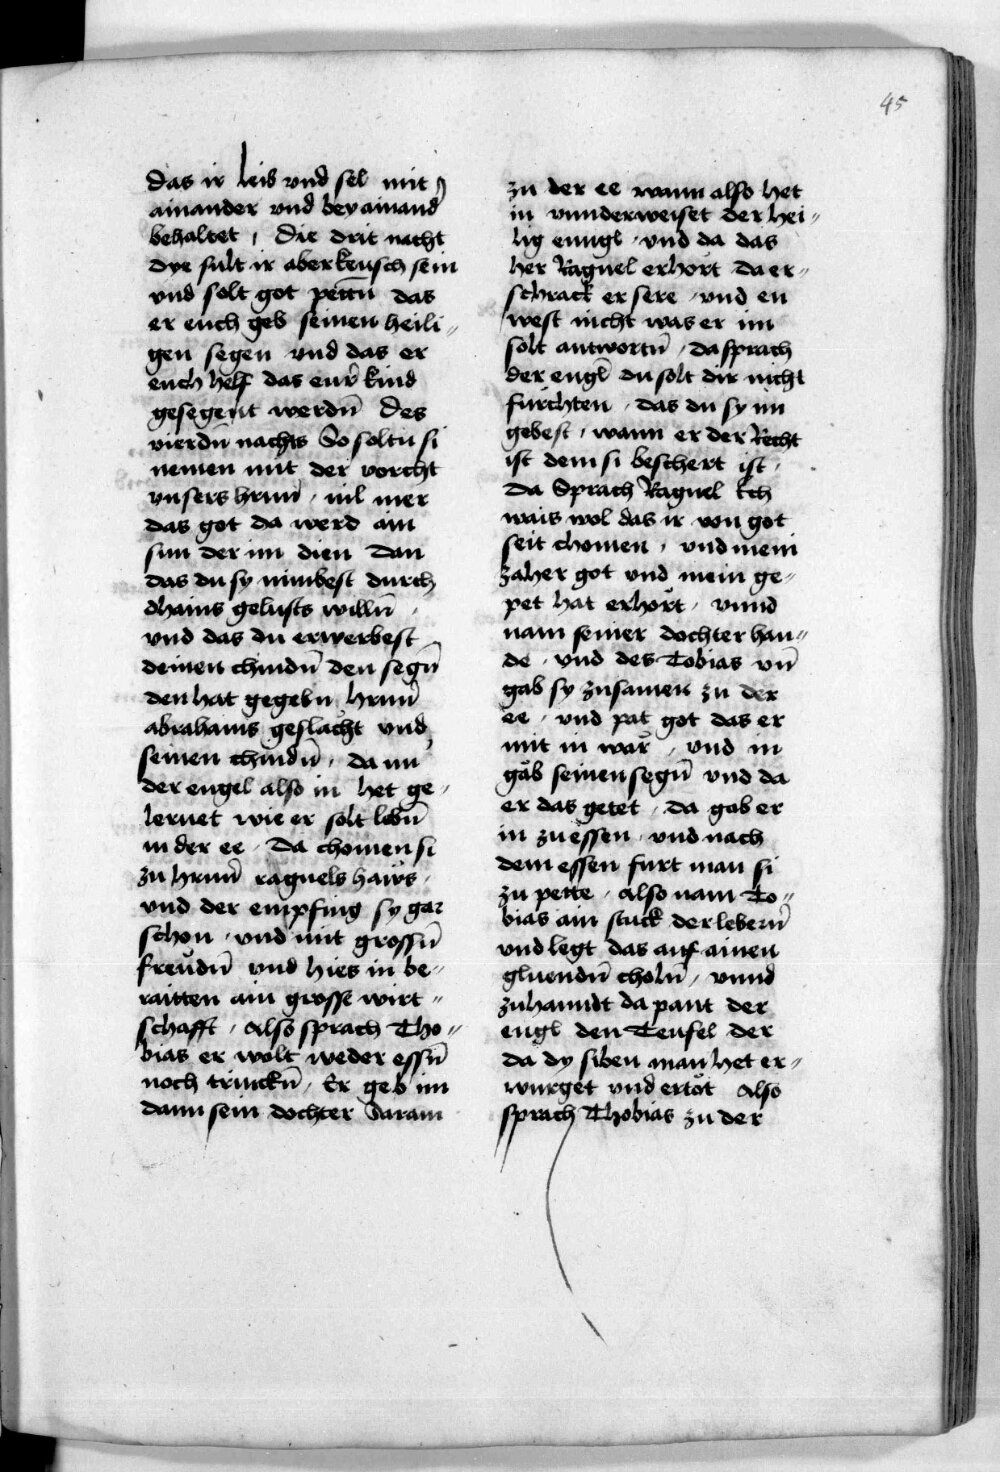 45
das ir leib vnd sel mit
ainander vnd bey ainand̄
behaltet / Die drit nacht
dye sult ir aber keusch sein
vnd solt got pettn̄ das
er euch geb seinen heili〃
gen segen vnd das er
euch helf das eur̄ kind
gesegent werdn̄ Des
vierdn̄ nachts So soltu si
nemen mit der vorcht
vnsers hrnn̄ / nil mer
das got da werd ain
sun der im dien Dan
das du sy nimbest durch
dhains gelusts willn̄ /
vnd das du erwerbest
deinen chindn̄ den segn̄
den hat gegebn̄ hrnn̄
abrahams geslächt vnd
seinen chindn̄ / da nu
der engel also in het ge〃
lernet wie er solt lebn̄
in der ee / Da chomen si
zu hrnn̄ raguels haws /
vnd der empfing sy gar
schon / vnd mit grossn̄
freudn̄ vnd hies in be〃
raitten ain grosse wirt〃
schafft / Also sprach Tho〃
bias er wolt weder essn̄
noch trinckn̄ / Er geb im
dann sein dochter Saram
zu der ee wann also het
in vnnderweiset der hei〃
lig enngl / vnd da das
her Raguel erhört da er〃
schrack er sere / vnd en
west nicht was er im
solt antwortn̄ / da sprach
der engl̄ du solt dir nicht
fürchten / das du sy im
gebest / wann er der Recht
ist dem si beschert ist /
Da Sprach Raguel Ich
wais wol das ir von got
seit chomen / vnd mein
zaher got vnd mein ge〃
pet hat erhört / vnnd
nam seiner dochter han〃
de / vnd des Tobias vn̄
gab sy zusamen zu der
ee / vnd pat got das er
mit in wär / vnd in
gäb seinen segn̄ vnd da
er das getet / da gab er
in zu essen / vnd nach
dem essen furt man si
zu pette / Also nam To〃
bias ain stuck der lebern̄
vnd legt das auf ainen
gluendn̄ choln̄ / vnnd
zuhanndt da pant der
engl den Teufel der
da dy siben man het er〃
wurget vnd ertöt Also
sprach Thobias zu der